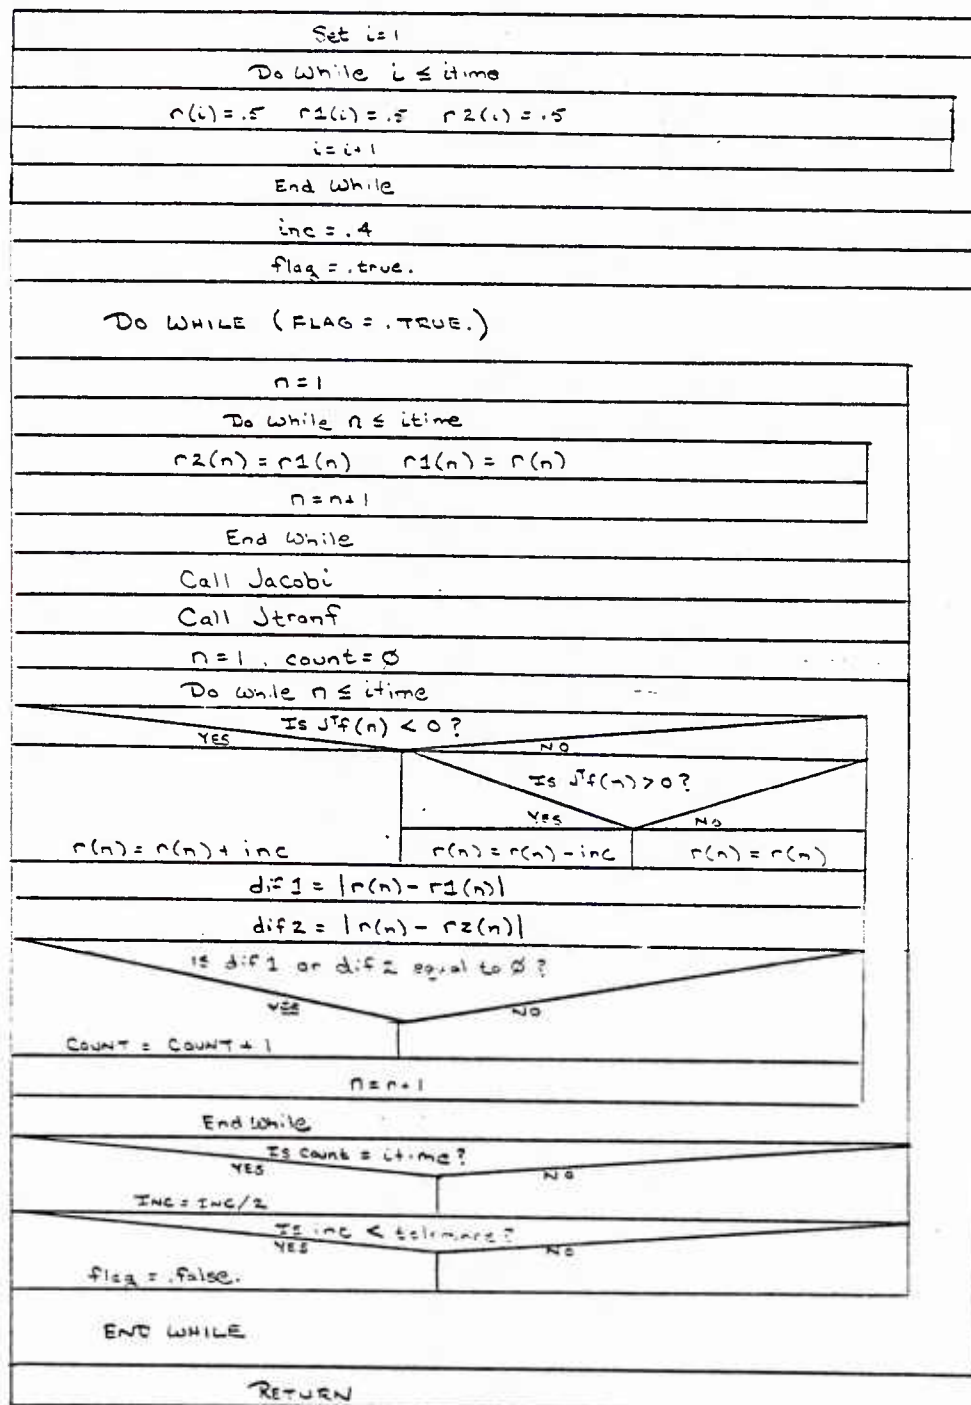 Set i=1
Do While i ≤ itime
r(i)=.5 r1(i)=.5 r2(i)=.5
i=i+1
End While
inc = .4
flag = .true.
DO WHILE (FLAG = .TRUE.)
n=1
Do while n ≤ itime
r2(n)=r1(n) r1(n)=r(n)
n=n+1
End While
Call Jacobi
Call Jtranf
n=1, count=Ø
Do while n ≤ itime
Is JᵀF(n) < 0?
YES NO
Is JᵀF(n)>0?
YES NO
r(n)=r(n)+ inc r(n)=r(n)-inc r(n)=r(n)
dif1 = |r(n)-r1(n)|
dif2 = |r(n)-r2(n)|
is dif1 or dif2 equal to Ø?
YES NO
COUNT = COUNT + 1
n=n+1
End While
Is count = itime?
YES NO
INC = INC/2
Is inc < tolerance?
YES NO
flag = .false.
END WHILE
RETURN